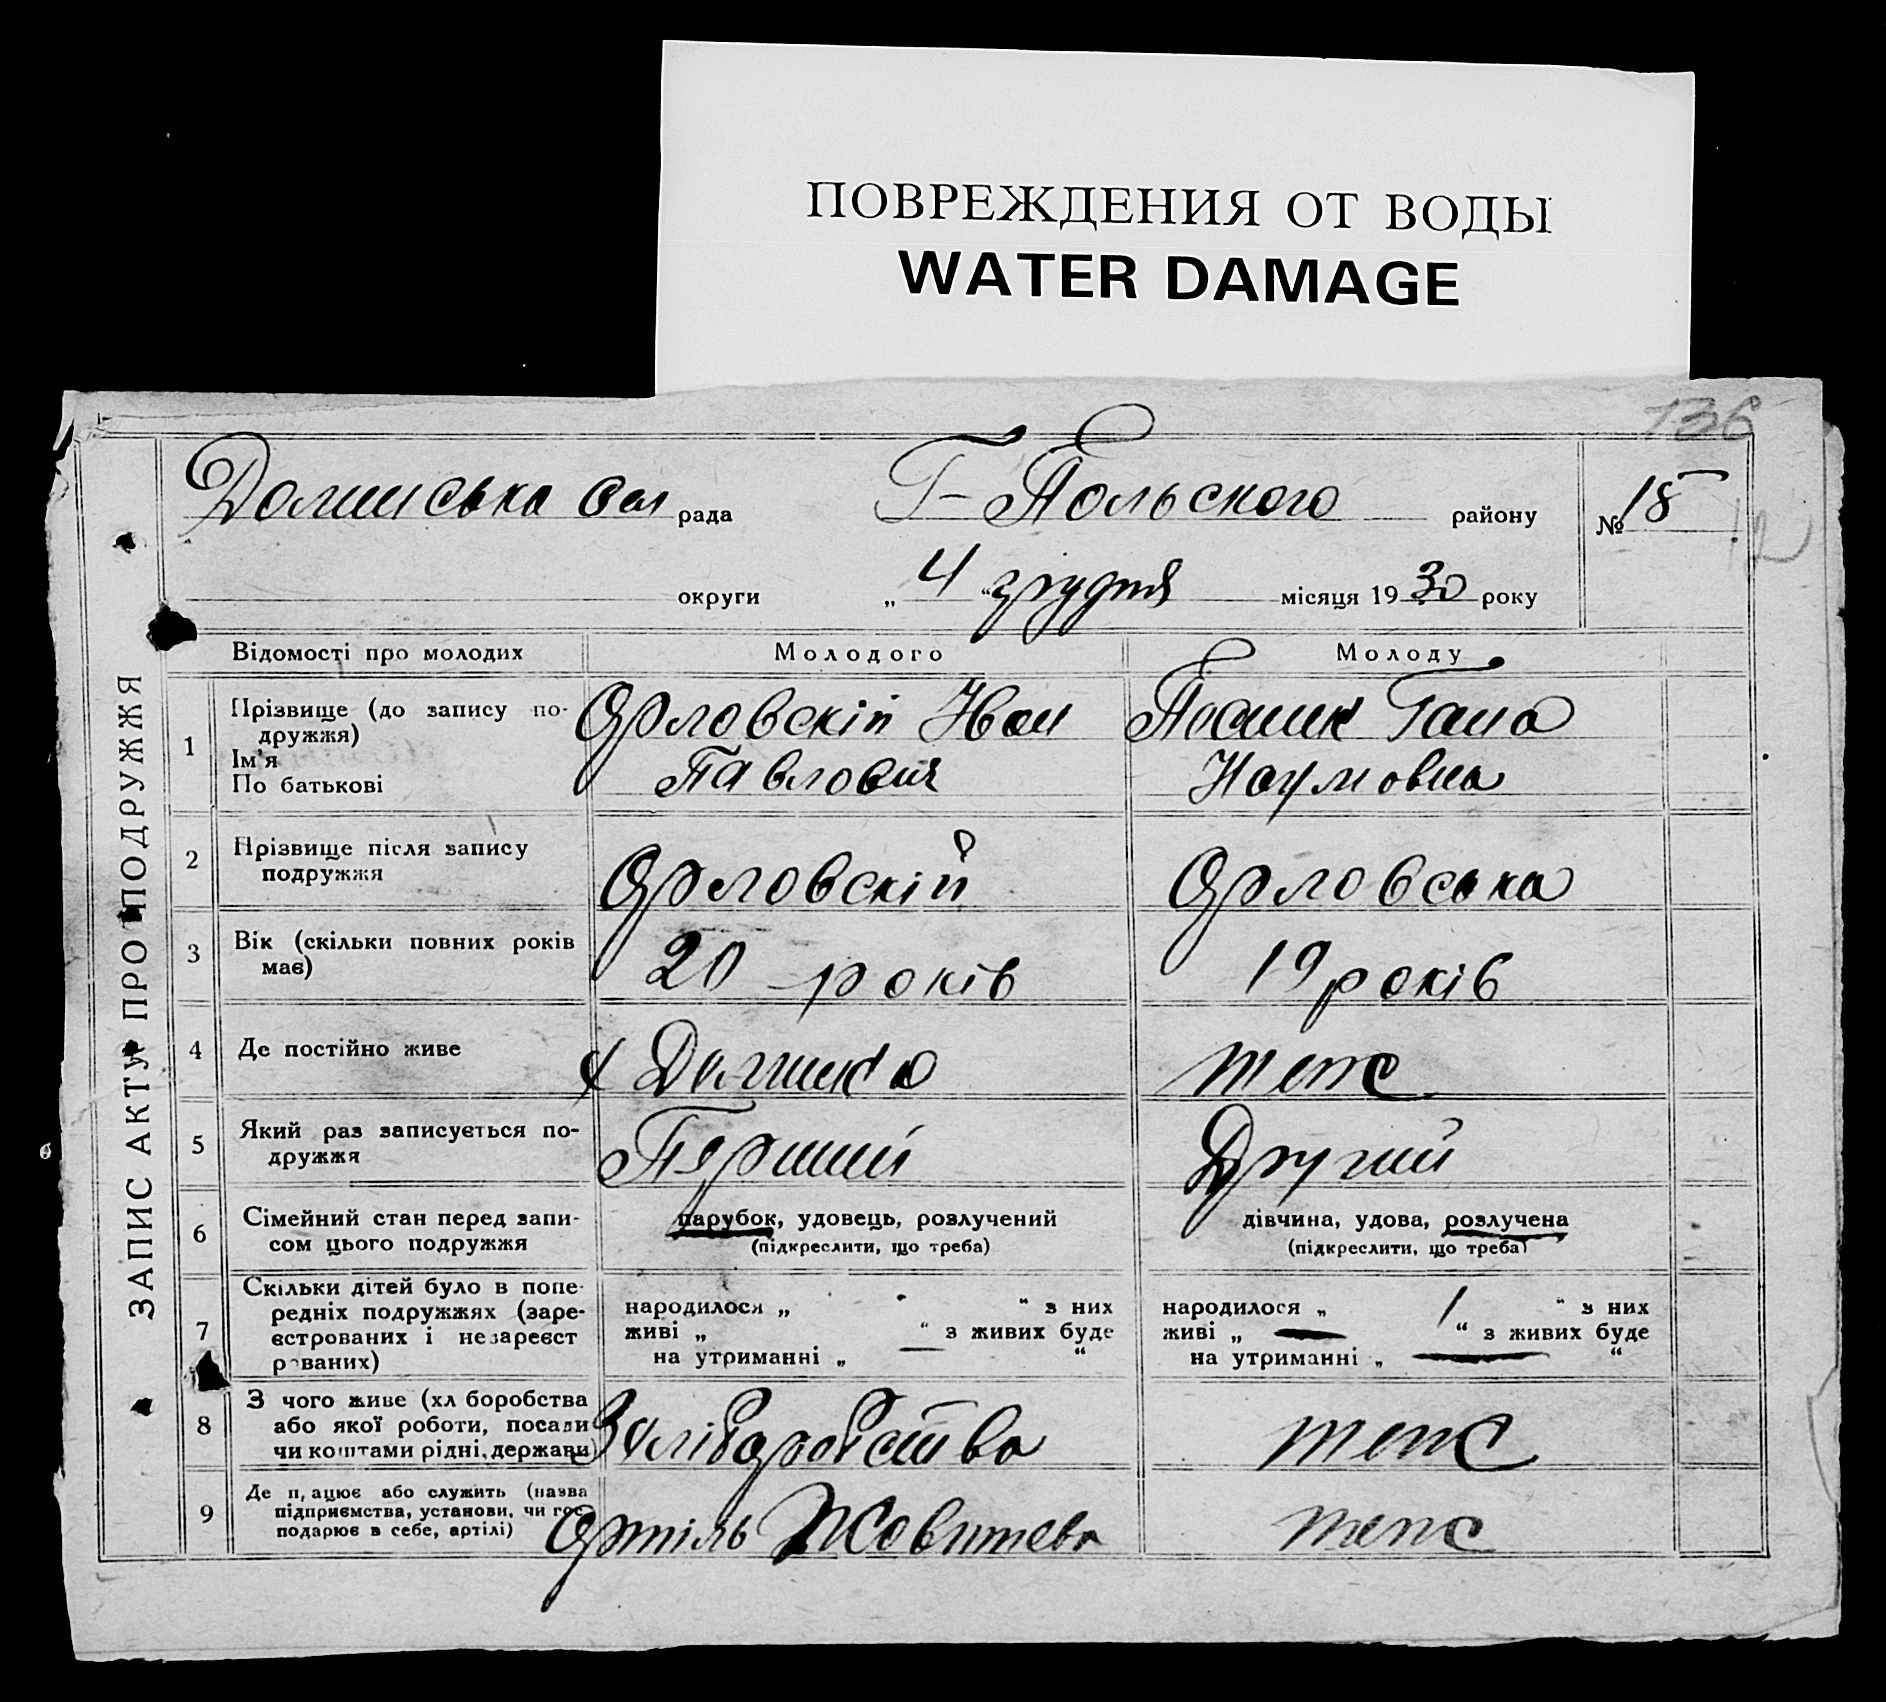 ПОВРЕЖДЕНИЯ ОТ ВОДЫ
WATER DAMAGE
136
Долинська сел рада Г-Польского району № 18
округи „ 4 “ грудня місяця 1930 року
ЗАПИС АКТУ ПРО ПОДРУЖЖЯ
Відомості про молодих Молодого Молоду
1 Прізвище (до запису по-
дружжя)
Ім'я
По батькові
Орловскій Иван
Павлович
Гана
Наумовна
2 Прізвище після запису
подружжя
Орловскій Орловська
3 Вік (скільки повних років
має)
20 років 19 років
4 Де постійно живе Долинка теж
5 Який раз записується по-
дружжя
Перший Другий
6 Сімейний стан перед запи-
сом цього подружжя
парубок, удовець, розлучений
(підкреслити, що треба)
дівчина, удова, розлучена
(підкреслити, що треба)
7 Скільки дітей було в попе-
редніх подружжях (заре-
єстрованих і незареєст
рованих)
народилося „ - “ з них
живі „ “ з живих буде
на утриманні „ — “
народилося „ 1 “ з них
живі „ — “ з живих буде
на утриманні „ — “
8 З чого живе (хліборобства
або якої роботи, посади
чи коштами рідні, держави)
З хліборобства теж
9 Де працює або служить (назва
підприємства, установи, чи гос-
подарює в себе, артілі)
Артіль теж